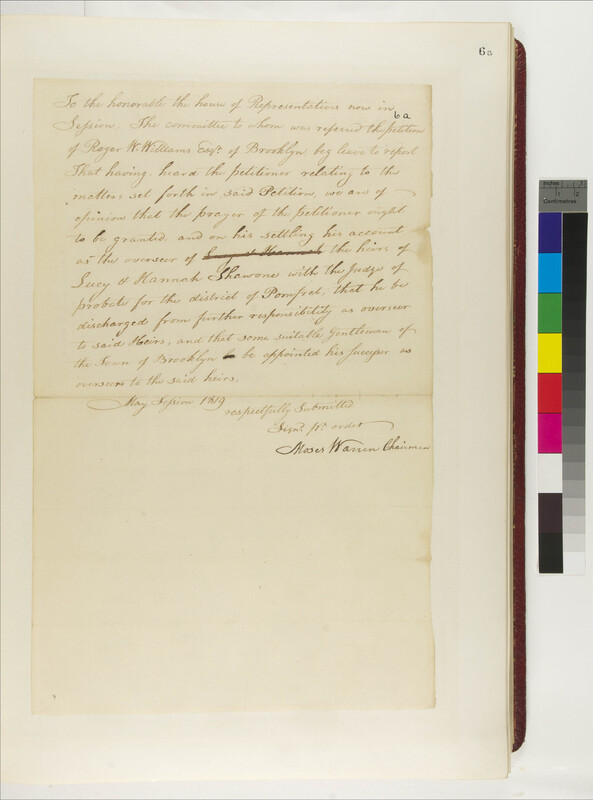 6a
To the honorable the house of Representatives now in
6a
Session. The committee to whom was referred the petition
of Roger W. Williams Esqr. of Brooklyn beg leave to report
That having heard the petitioner relating to the
matters set forth in said Petition, we are of
opinion that the prayer of the petitioner ought
to be granted, and on his settling his account
as the overseer of Lucy & Hannah the heirs of
Lucy & Hannah Shawone with the Judge of
probate for the district of Pomfret, that he be
discharged from further responsibility as overseer
to said Heirs, and that some suitable Gentleman of
the Town of Brooklyn be appointed his succeser as
overseer to the said heirs.
May Session 1819
respectfully Submitted
Signd. pr. order
Moses Warren Chairman
Inches
1
2
Centimetres